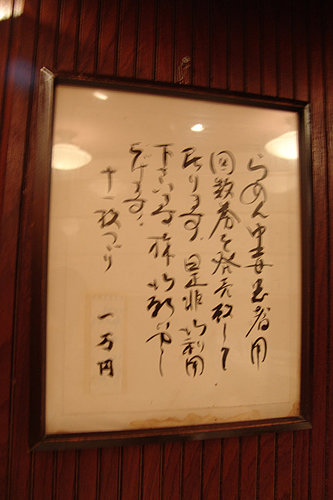 らめん中毒患者用
回数券を発売致して
居ります。是非御利用
下さいます様御願いし
ます。
十一枚つづり
一万円